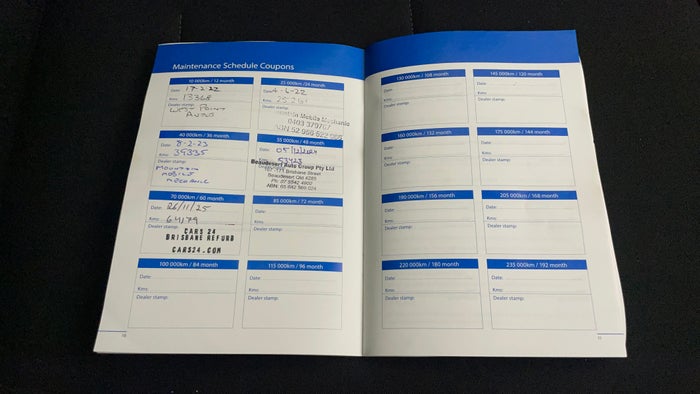 Maintenance Schedule Coupons
10 000km / 12 month
Date: 17-2-22
Kms: 13368
Dealer stamp:
WEST POINT
AUTO
25 000km / 24 month
Date: 4-6-22
Kms:
Dealer stamp:
Mobile Mechanic
0403 379767
ABN 52 966 622 066
40 000km / 36 month
Date: 8-2-23
Kms: 39335
Dealer stamp
MOUNTAIN
MOBILE
MECHANIC
55 000km / 48 month
Date:
Kms: 53423
Dealer stamp:
Beaudesert Auto Group Pty Ltd
Brisbane Street
Beaudesert Qld 4285
Ph: 07 5542 4800
ABN: 65 642 589 024
70 000km / 60 month
Date: 26/11/25
Kms: 64179
Dealer stamp:
CARS 24
BRISBANE REFURB
CARS24.COM
85 000km / 72 month
Date:
Kms:
Dealer stamp:
100 000km / 84 month
Date:
Kms:
Dealer stamp:
115 000km / 96 month
Date:
Kms:
Dealer stamp:
10
130 000km / 108 month
Date:
Kms:
Dealer stamp:
145 000km / 120 month
Date:
Kms:
Dealer stamp:
160 000km / 132 month
Date:
Kms:
Dealer stamp:
175 000km / 144 month
Date:
Kms:
Dealer stamp:
190 000km / 156 month
Date:
Kms:
Dealer stamp:
205 000km / 168 month
Date:
Kms:
Dealer stamp:
220 000km / 180 month
Date:
Kms:
Dealer stamp:
235 000km / 192 month
Date:
Kms:
Dealer stamp:
11